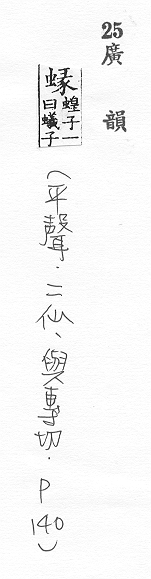 25
廣韻
蝝 蝗子一
曰蟻子
(平聲．二仙、與專切．P140)